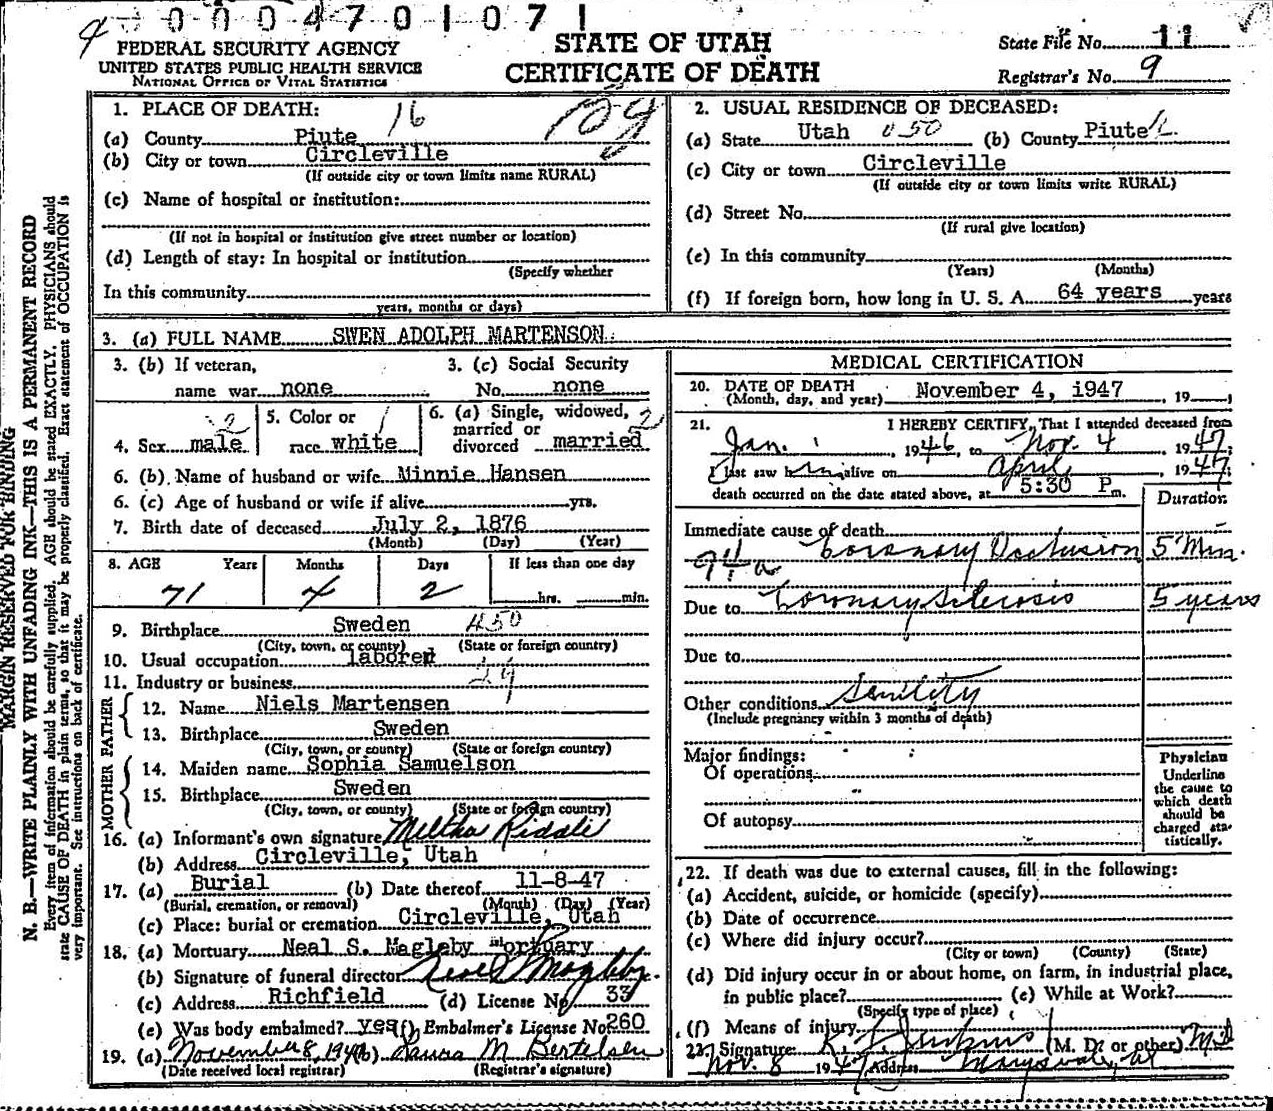 0004701071
FEDERAL SECURITY AGENCY
UNITED STATES PUBLIC HEALTH SERVICE
NATIONAL OFFICE OF VITAL STATISTICS
STATE OF UTAH
CERTIFICATE OF DEATH
State File No. 11
Registrar's No. 9
MARGIN RESERVED FOR BINDING
N. B.—WRITE PLAINLY WITH UNFADING INK—THIS IS A PERMANENT RECORD
Every item of information should be carefully supplied. AGE should be stated EXACTLY. PHYSICIANS should
state CAUSE OF DEATH in plain terms, so that it may be properly classified. Exact statement of OCCUPATION is
very important. See instructions on back of certificate.
1. PLACE OF DEATH: 16
(a) County Piute
(b) City or town Circleville
(If outside city or town limits name RURAL)
(c) Name of hospital or institution:
(If not in hospital or institution give street number or location)
(d) Length of stay: In hospital or institution
(Specify whether
In this community
years, months or days)
2. USUAL RESIDENCE OF DECEASED:
(a) State Utah 050 (b) County Piute
(c) City or town Circleville
(If outside city or town limits write RURAL)
(d) Street No.
(If rural give location)
(e) In this community
(Years) (Months)
(f) If foreign born, how long in U. S. A. 64 years years
3. (a) FULL NAME SWEN ADOLPH MARTENSON
3. (b) If veteran, 3. (c) Social Security
name war none No. none
4. Sex male 2
5. Color or race white 1
6. (a) Single, widowed, married or divorced married 2
6. (b) Name of husband or wife Minnie Hansen
6. (c) Age of husband or wife if alive yrs.
7. Birth date of deceased July 2, 1876
(Month) (Day) (Year)
8. AGE Years Months Days If less than one day
71 4 2 hrs. min.
9. Birthplace Sweden 450
(City, town, or county) (State or foreign country)
10. Usual occupation laborer
11. Industry or business
FATHER
12. Name Niels Martensen
13. Birthplace Sweden
(City, town, or county) (State or foreign country)
MOTHER
14. Maiden name Sophia Samuelson
15. Birthplace Sweden
(City, town, or county) (State or foreign country)
16. (a) Informant's own signature Riddle
(b) Address Circleville, Utah
17. (a) Burial (b) Date thereof 11-8-47
(Burial, cremation, or removal) (Month) (Day) (Year)
(c) Place: burial or cremation Circleville, Utah
18. (a) Mortuary Neal S. Magleby Mortuary
(b) Signature of funeral director Neal S Magleby
(c) Address Richfield (d) License No. 33
(e) Was body embalmed? yes (f) Embalmer's License No. 260
19. (a) November 8, 1947 (b) Laura M Bertelsen
(Date received local registrar) (Registrar's signature)
MEDICAL CERTIFICATION
20. DATE OF DEATH November 4, 1947 19
(Month, day, and year)
21. I HEREBY CERTIFY, That I attended deceased from
Jan. 1946, to Nov. 4 1947;
I last saw him alive on April, 1947;
death occurred on the date stated above, at 5:30 P m.
Duration
Immediate cause of death
94a Coronary Occlusion 5 Min.
Due to Coronary Sclerosis 5 years
Due to
Other conditions Senility
(Include pregnancy within 3 months of death)
Major findings:
Of operations
Of autopsy
Physician
Underline
the cause to
which death
should be
charged sta-
tistically.
22. If death was due to external causes, fill in the following:
(a) Accident, suicide, or homicide (specify)
(b) Date of occurrence
(c) Where did injury occur?
(City or town) (County) (State)
(d) Did injury occur in or about home, on farm, in industrial place,
in public place? (e) While at Work?
(Specify type of place)
(f) Means of injury
23. Signature Jenkins (M. D. or other) M.D
Nov. 8 1947 Address Marysvale, Ut